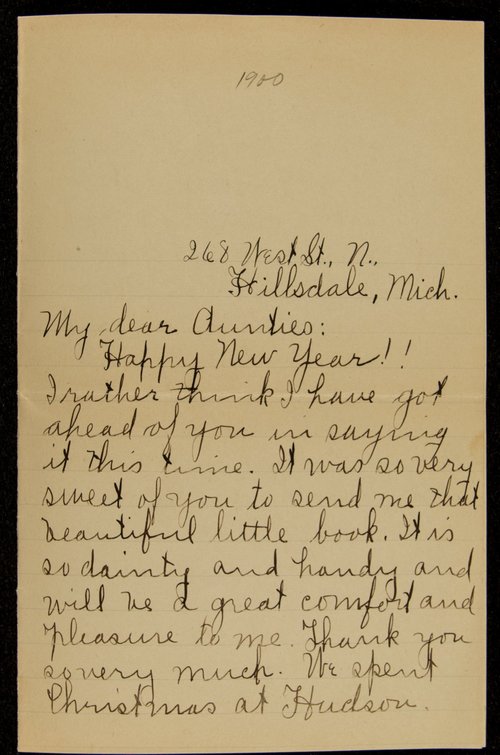 1900
268 West St., N.,
Hillsdale, Mich.
My dear Aunties:
Happy New Year!!
I rather think I have got
ahead of you in saying
it this time. It was so very
sweet of you to send me that
beautiful little book. It is
so dainty and handy and
will be a great comfort and
pleasure to me. Thank you
so very much. We spent
Christmas at Hudson.